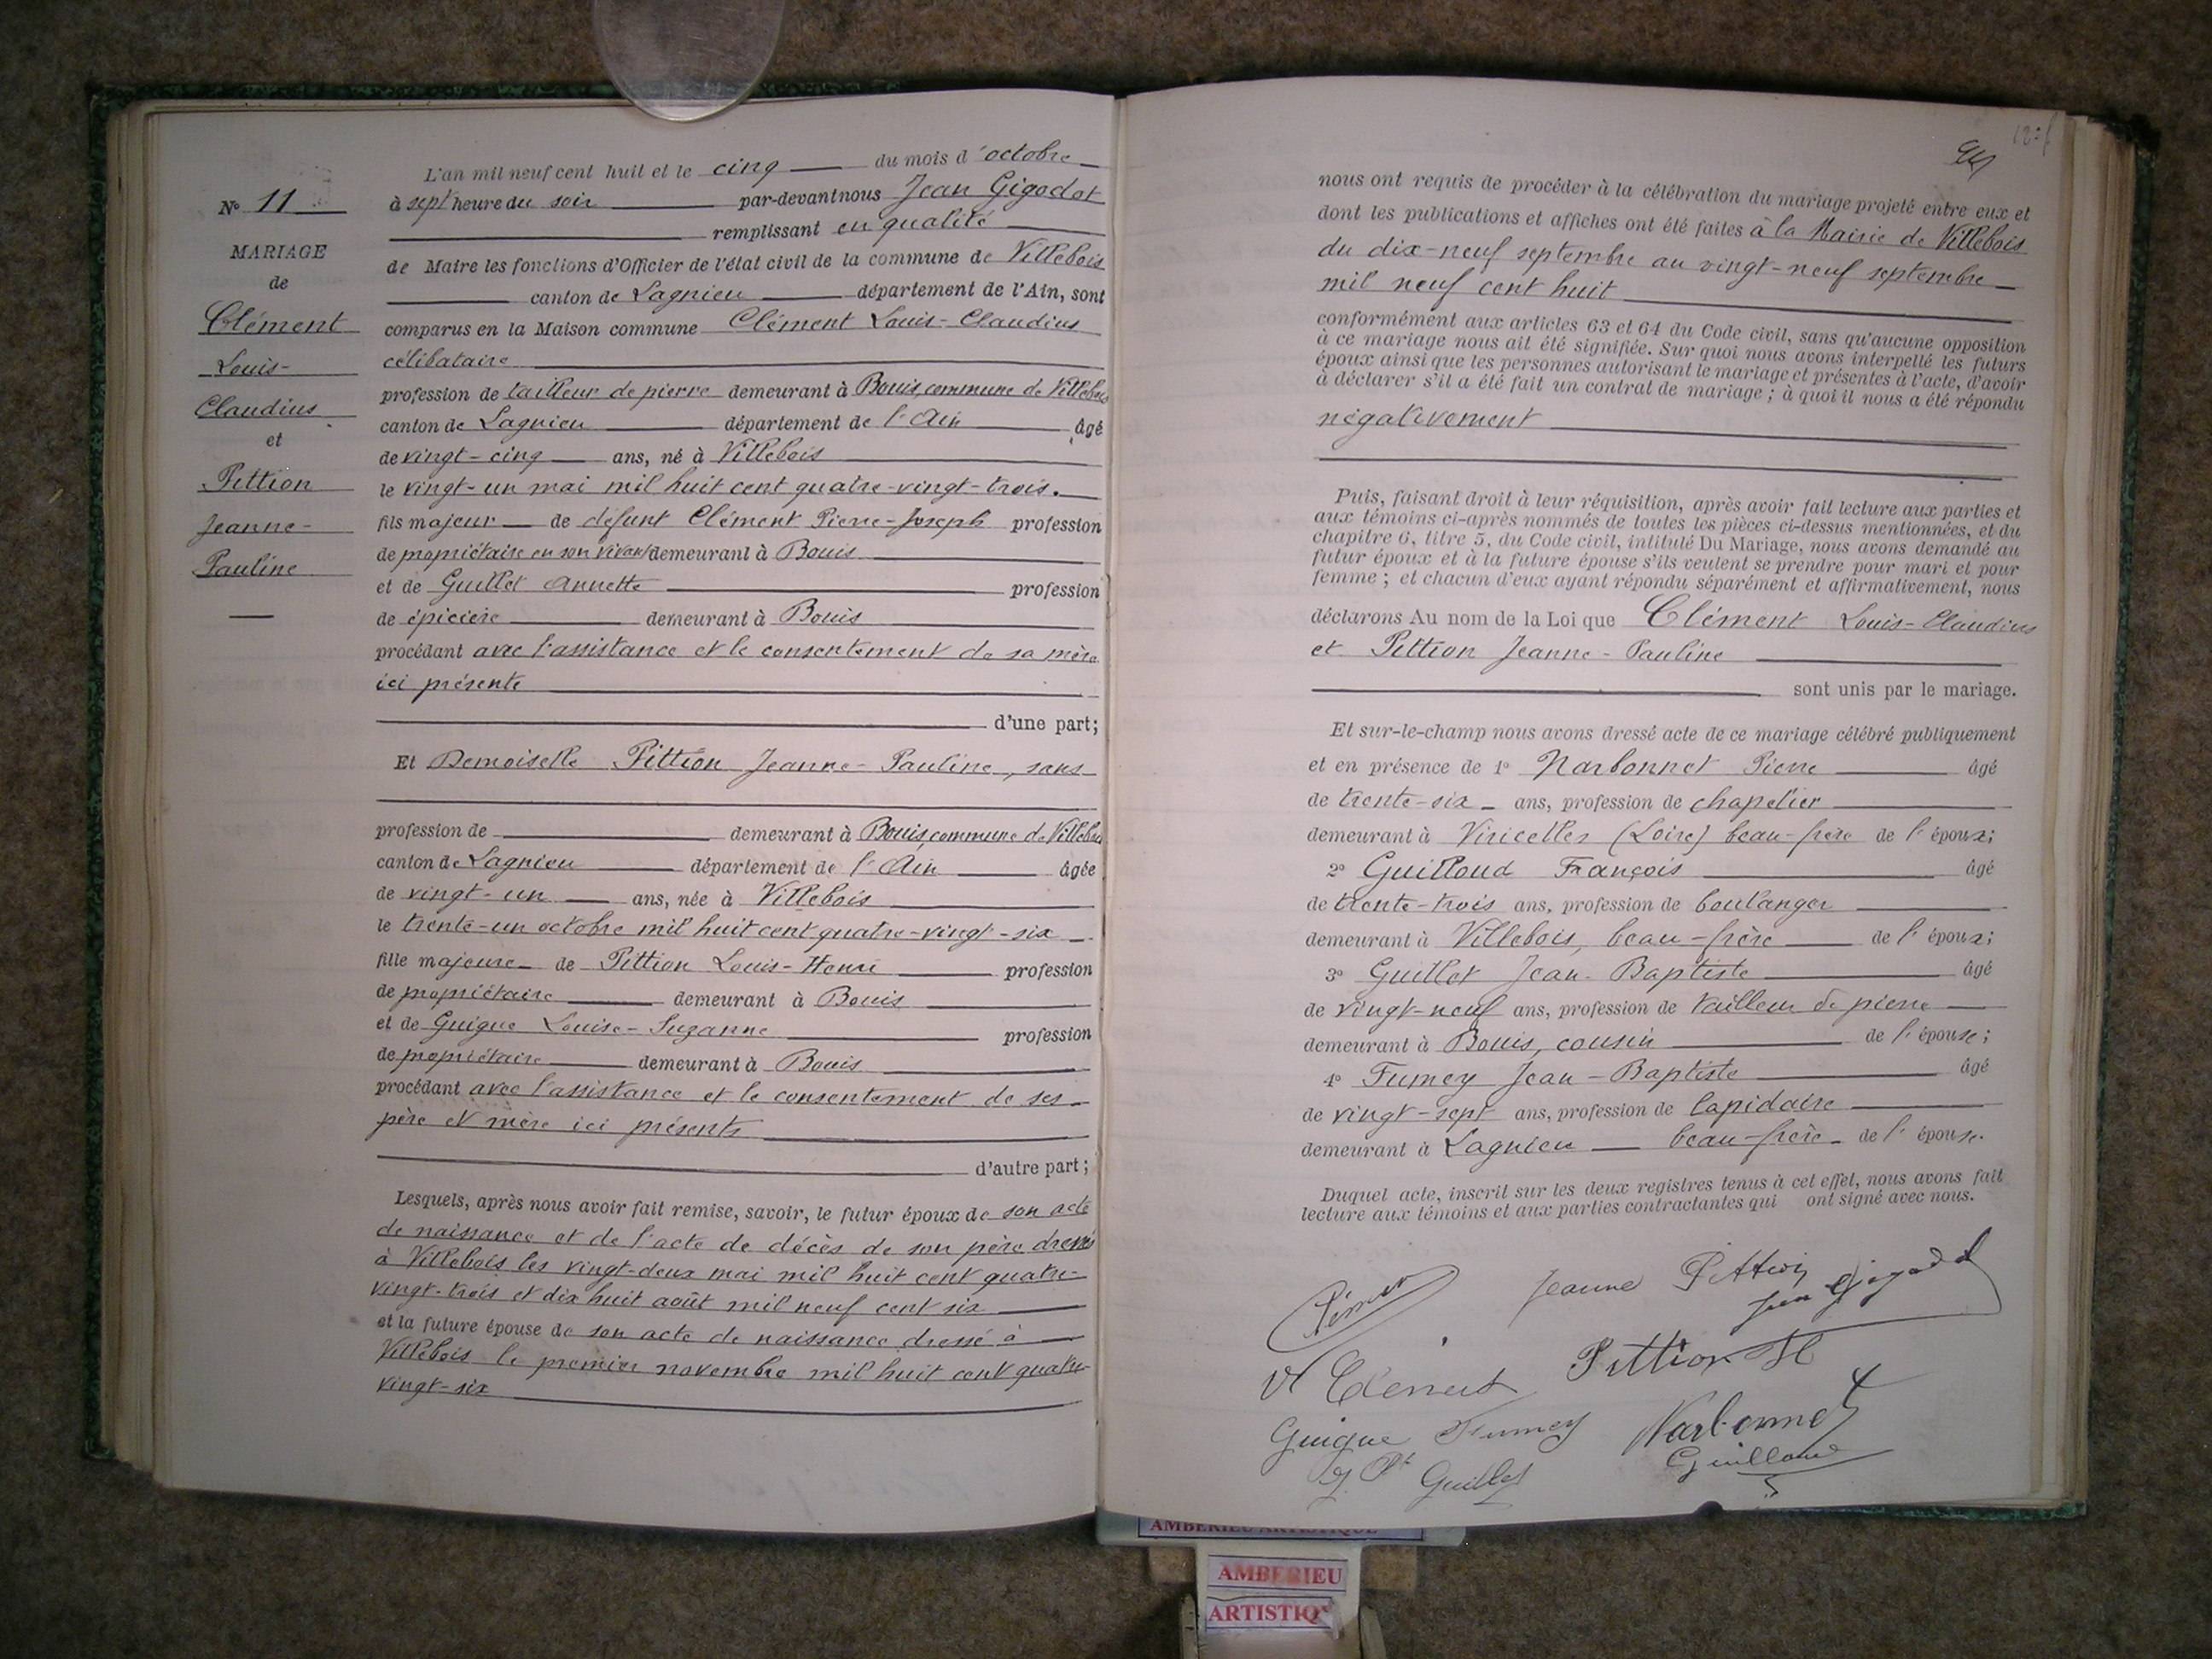 N° 11
MARIAGE
de
Clément
Louis-
Claudius
et
Pittion
Jeanne-
Pauline
L'an mil neuf cent huit et le cinq du mois d'octobre
à sept heure du soir par-devant nous Jean Gigodot
remplissant en qualité
de Maire les fonctions d'Officier de l'état civil de la commune de Villebois
canton de Lagnieu département de l'Ain, sont
comparus en la Maison commune Clément Louis-Claudius
célibataire
profession de tailleur de pierre demeurant à Bouis, commune de Villebois
canton de Lagnieu département de l'Ain âgé
de vingt-cinq ans, né à Villebois
le vingt-un mai mil huit cent quatre-vingt-trois.
fils majeur de défunt Clément Pierre-Joseph profession
de propriétaire en son vivant demeurant à Bouis
et de Guillet Annette profession
de épicière demeurant à Bouis
procédant avec l'assistance et le consentement de sa mère
ici présente
d'une part;
Et Demoiselle Pittion Jeanne-Pauline, sans
profession de demeurant à Bouis, commune de Villebois
canton de Lagnieu département de l'Ain âgée
de vingt-un ans, née à Villebois
le trente-un octobre mil huit cent quatre-vingt-six
fille majeure de Pittion Louis-Henri profession
de propriétaire demeurant à Bouis
et de Guigue Louise-Suzanne profession
de propriétaire demeurant à Bouis
procédant avec l'assistance et le consentement de ses
père et mère ici présents
d'autre part;
Lesquels, après nous avoir fait remise, savoir, le futur époux de son acte
de naissance et de l'acte de décès de son père dressés
à Villebois les vingt-deux mai mil huit cent quatre-
vingt-trois et dix huit août mil neuf cent six
et la future épouse de son acte de naissance dressé à
Villebois le premier novembre mil huit cent quatre-
vingt-six
nous ont requis de procéder à la célébration du mariage projeté entre eux et
dont les publications et affiches ont été faites à la Mairie de Villebois
du dix-neuf septembre au vingt-neuf septembre
mil neuf cent huit
conformément aux articles 63 et 64 du Code civil, sans qu'aucune opposition
à ce mariage nous ait été signifiée. Sur quoi nous avons interpellé les futurs
époux ainsi que les personnes autorisant le mariage et présentes à l'acte, d'avoir
à déclarer s'il a été fait un contrat de mariage; à quoi il nous a été répondu
négativement
Puis, faisant droit à leur réquisition, après avoir fait lecture aux parties et
aux témoins ci-après nommés de toutes les pièces ci-dessus mentionnées, et du
chapitre 6, titre 5, du Code civil, intitulé Du Mariage, nous avons demandé au
futur époux et à la future épouse s'ils veulent se prendre pour mari et pour
femme; et chacun d'eux ayant répondu séparément et affirmativement, nous
déclarons Au nom de la Loi que Clément Louis-Claudius
et Pittion Jeanne-Pauline
sont unis par le mariage.
Et sur-le-champ nous avons dressé acte de ce mariage célébré publiquement
et en présence de 1° Narbonnet Pierre âgé
de trente-six ans, profession de chapelier
demeurant à Viricelles (Loire) beau-frère de l'époux;
2° Guilloud François âgé
de trente-trois ans, profession de boulanger
demeurant à Villebois, beau-frère de l'époux;
3° Guillet Jean-Baptiste âgé
de vingt-neuf ans, profession de tailleur de pierre
demeurant à Bouis, cousin de l'épouse;
4° Fumey Jean-Baptiste âgé
de vingt-sept ans, profession de lapidaire
demeurant à Lagnieu beau-frère de l'épouse.
Duquel acte, inscrit sur les deux registres tenus à cet effet, nous avons fait
lecture aux témoins et aux parties contractantes qui ont signé avec nous.
Jeanne Pittion
Jean Gigodot
Clément
Pittion H
Guigue Fumey Narbonnet
J. Bte Guillet Guilloud
AMBERIEU ARTISTIQUE
AMBERIEU
ARTISTIQ